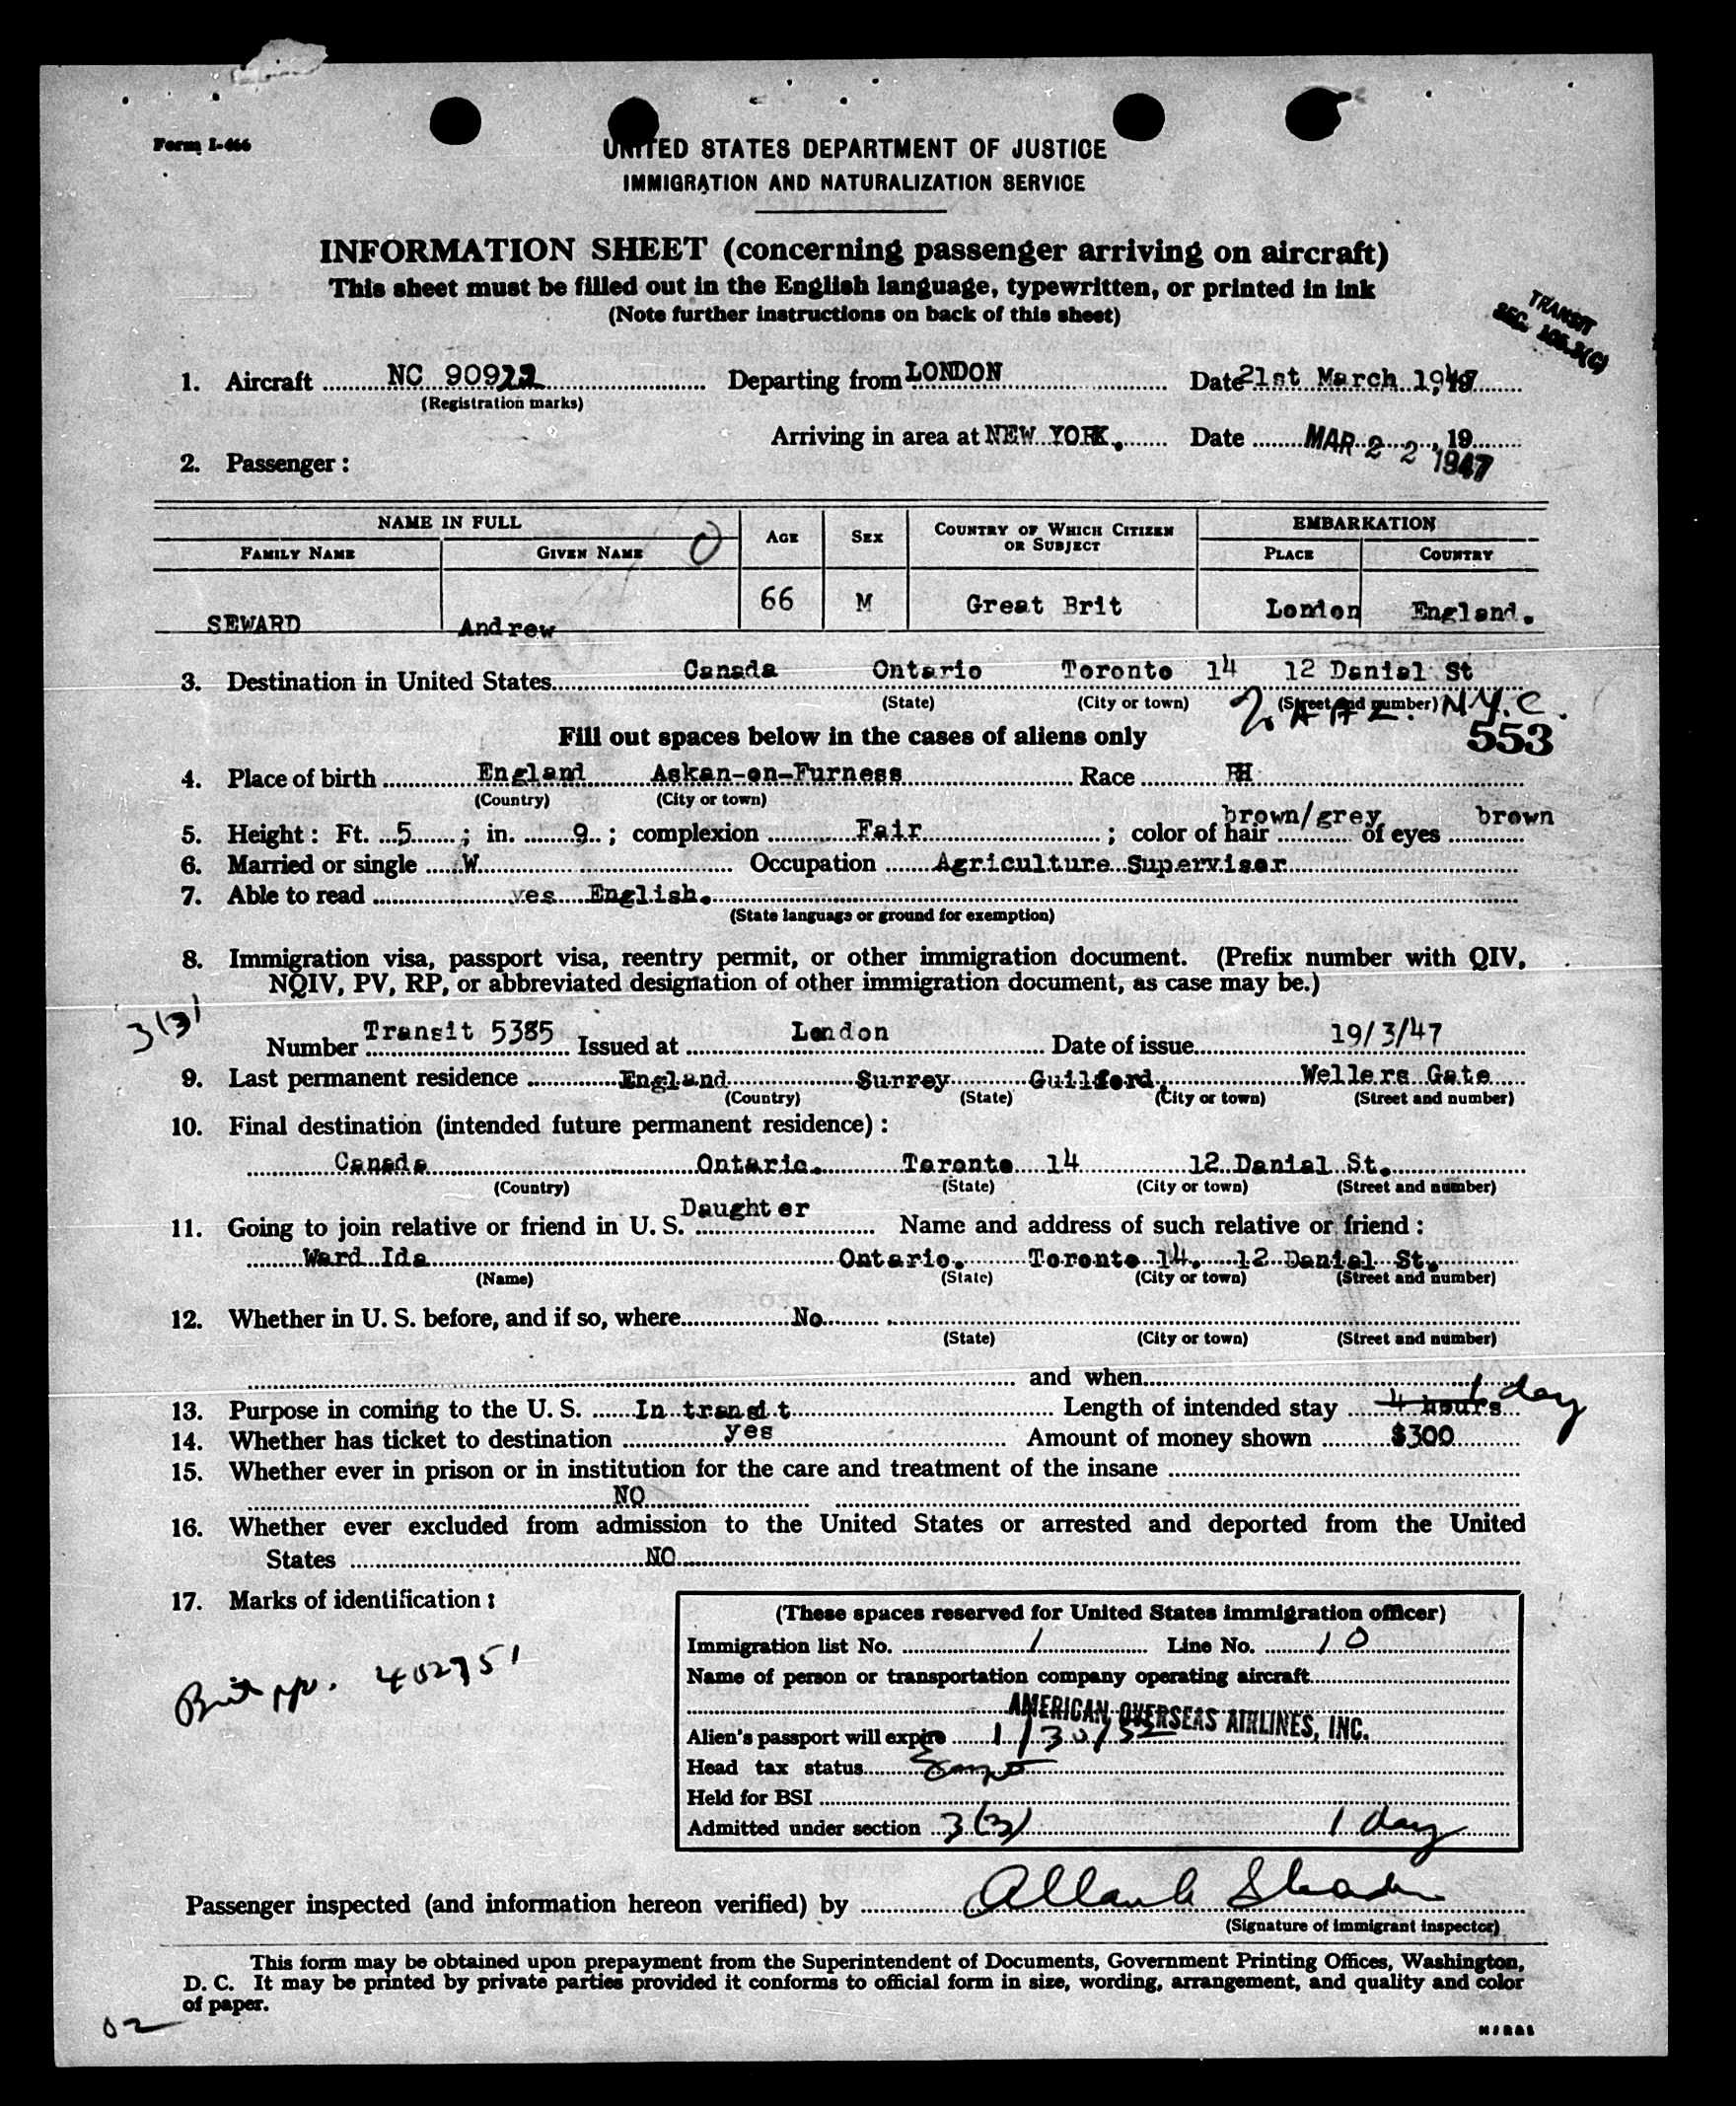 Form I-466
UNITED STATES DEPARTMENT OF JUSTICE
IMMIGRATION AND NATURALIZATION SERVICE
INFORMATION SHEET (concerning passenger arriving on aircraft)
This sheet must be filled out in the English language, typewritten, or printed in ink
(Note further instructions on back of this sheet)
TRANSIT
SEC.
1. Aircraft NC 90922 Departing from LONDON Date 21st March 1947
(Registration marks)
Arriving in area at NEW YORK. Date MAR 22, 19
1947
2. Passenger:
NAME IN FULL AGE SEX COUNTRY OF WHICH CITIZEN OR SUBJECT EMBARKATION
FAMILY NAME GIVEN NAME PLACE COUNTRY
SEWARD Andrew 66 M Great Brit London England.
3. Destination in United States Canada Ontario Toronto 14 12 Danial St
(State) (City or town) (Street and number) N.Y.C.
Fill out spaces below in the cases of aliens only 553
4. Place of birth England Askan-on-Furness Race
(Country) (City or town)
5. Height: Ft. 5; in. 9; complexion Fair; color of hair brown/grey of eyes brown
6. Married or single W Occupation Agriculture Supervisor
7. Able to read yes English.
(State language or ground for exemption)
8. Immigration visa, passport visa, reentry permit, or other immigration document. (Prefix number with QIV,
NQIV, PV, RP, or abbreviated designation of other immigration document, as case may be.)
3(3)
Number Transit 5385 Issued at London Date of issue 19/3/47
9. Last permanent residence England Surrey Guilford, Wellers Gate
(Country) (State) (City or town) (Street and number)
10. Final destination (intended future permanent residence):
Canada Ontario. Toronto 14 12 Danial St.
(Country) (State) (City or town) (Street and number)
11. Going to join relative or friend in U. S. Daughter Name and address of such relative or friend:
Ward Ida Ontario. Toronto 14. 12 Danial St.
(Name) (State) (City or town) (Street and number)
12. Whether in U. S. before, and if so, where No
(State) (City or town) (Street and number)
and when
13. Purpose in coming to the U. S. In transit Length of intended stay 4 hours 1 day
14. Whether has ticket to destination yes Amount of money shown $300
15. Whether ever in prison or in institution for the care and treatment of the insane
NO
16. Whether ever excluded from admission to the United States or arrested and deported from the United
States NO
17. Marks of identification:
Brit pp. 402751
(These spaces reserved for United States immigration officer)
Immigration list No. 1 Line No. 10
Name of person or transportation company operating aircraft
AMERICAN OVERSEAS AIRLINES, INC.
Alien's passport will expire 1/30/52
Head tax status
Held for BSI
Admitted under section 3(3) 1 day
Passenger inspected (and information hereon verified) by
(Signature of immigrant inspector)
This form may be obtained upon prepayment from the Superintendent of Documents, Government Printing Offices, Washington,
D. C. It may be printed by private parties provided it conforms to official form in size, wording, arrangement, and quality and color
of paper.
02